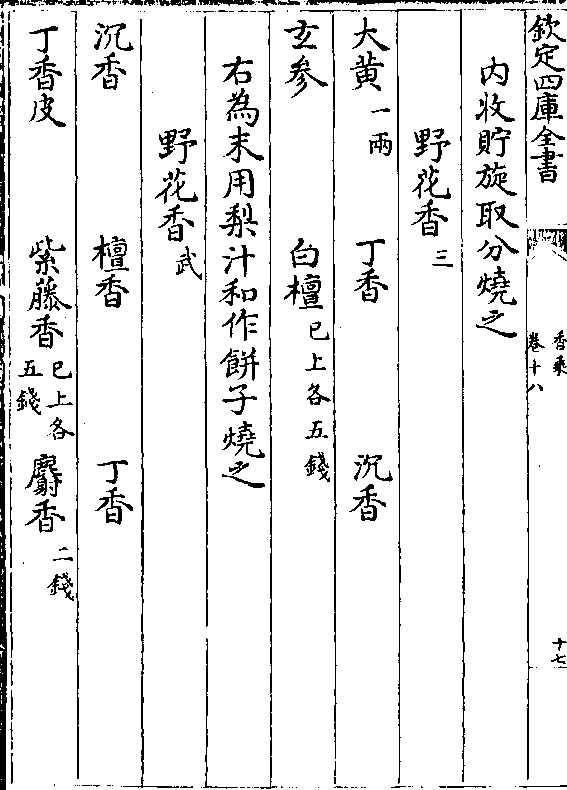 欽定四庫全書
香乘
卷十八
十七
內收貯旋取分燒之
野花香三
大黄一兩 丁香 沉香
玄參 白檀已上各五錢
右為末用梨汁和作餅子燒之
野花香武
沉香 檀香 丁香
丁香皮 紫藤香已上各五錢 麝香二錢